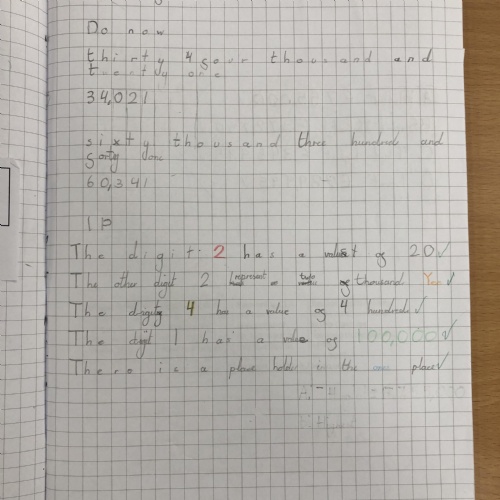 Do now
thirty 4 four thousand and
twenty one
34,021
sixty thousand three hundred and
forty one
60,341
1P
The digit 2 has a value of 20 ✓
The other digit 2 represent two thousand Yes ✓
The digity 4 has a value of 4 hundred ✓
The digit 1 has a value of 100,000 ✓
There is a place holder in the one place ✓